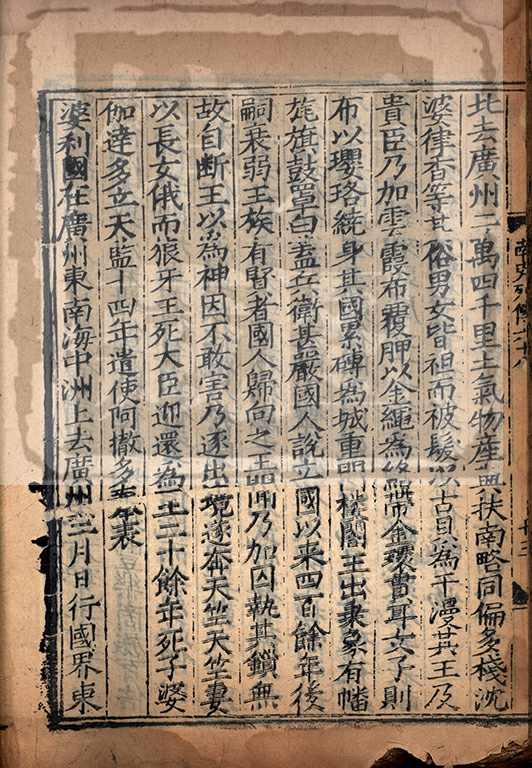 北去廣州二萬四千里土氣物産與扶南略同偏多棧沈
婆律香等其俗男女皆袒而被髮以古貝為干漫其王及
貴臣乃加雲霞布覆胛以金繩為絡帶金環貫耳女子則
布以瓔珞繞身其國累磚為城重門樓閣王出乗象有幡
旄旗鼓罩白蓋兵衛甚嚴國人說立國以来四百餘年後
嗣衰弱王族有賢者國人歸向之王聞乃加囚執其鏁無
故自断王以為神因不敢害乃逐出境遂奔天竺天竺妻
以長女俄而狼牙王死大臣迎還為王二十餘年死子婆
伽達多立天監十四年遣使阿撤多奉表
婆利國在廣州東南海中洲上去廣州二月日行國界東